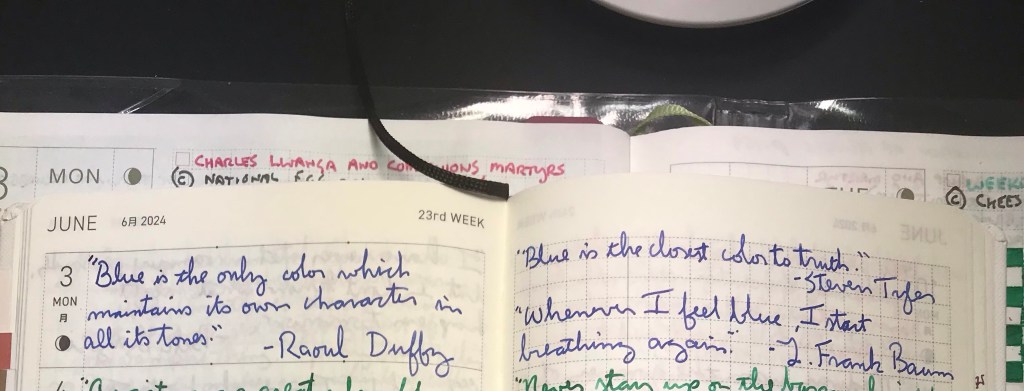 MON
CHARLES LWANGA AND COMPANIONS, MARTYRS
(C) NATIONAL
WEEK
(C) CHEES
JUNE 6月 2024
23rd WEEK
3
MON
月
"Blue is the only color which
maintains its own character in
all its tones."
-Raoul Duffy
"Blue is the closest color to truth."
-Steven Tyler
"Whenever I feel blue, I start
breathing again." -L. Frank Baum
"Never stay up on the